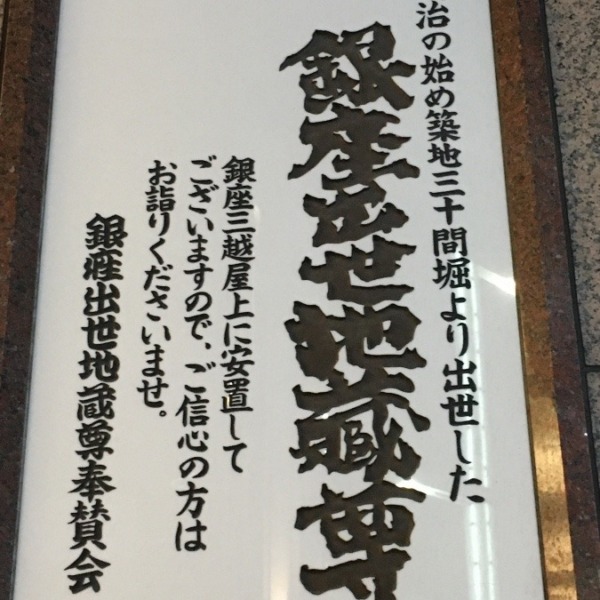 治の始め築地三十間堀より出世した
銀座出世地蔵尊
銀座三越屋上に安置して
ございますので、ご信心の方は
お詣りくださいませ。
銀座出世地蔵尊奉賛会